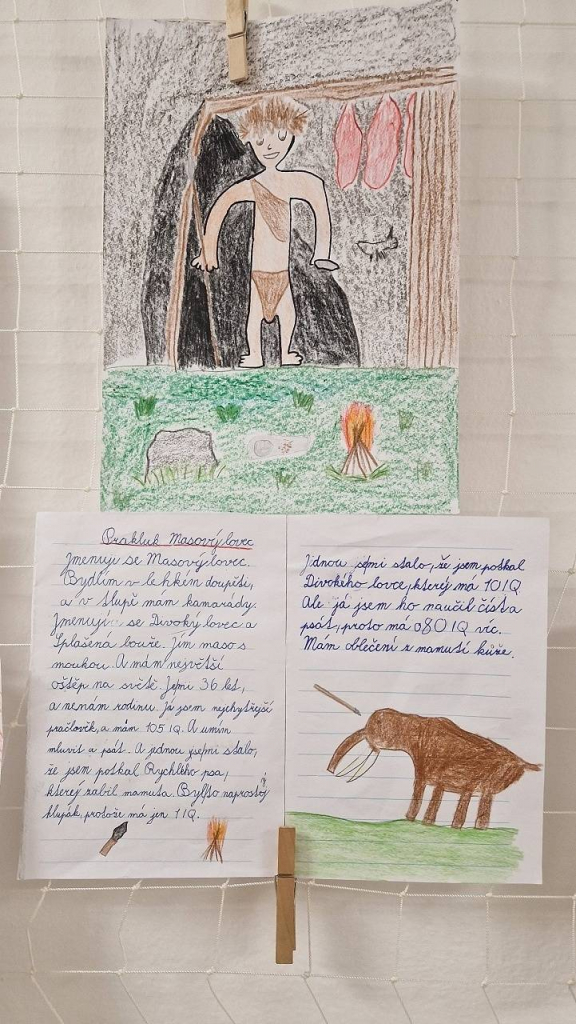 Prakluk Masový lovec
Jmenuji se Masový lovec.
Bydlím v lehkém doupěti,
a v tlupě mám kamarády.
Jmenují se Divoký lovec a
Splašená bouře. Jím maso s
moukou. A mám největší
oštěp na světě. Je mi 36 let,
a nemám rodinu. Já jsem nejchytřejší
pračlověk, a mám 105 IQ. A umím
mluvit a psát. A jednou se mi stalo,
že jsem potkal Rychlého psa,
který zabil mamuta. Byl to naprostý
hlupák, protože má jen 1 IQ.
Jednou se mi stalo, že jsem potkal
Divokého lovce, který má 10 IQ.
Ale já jsem ho naučil číst a
psát, proto má o 80 IQ víc.
Mám oblečení z mamutí kůže.